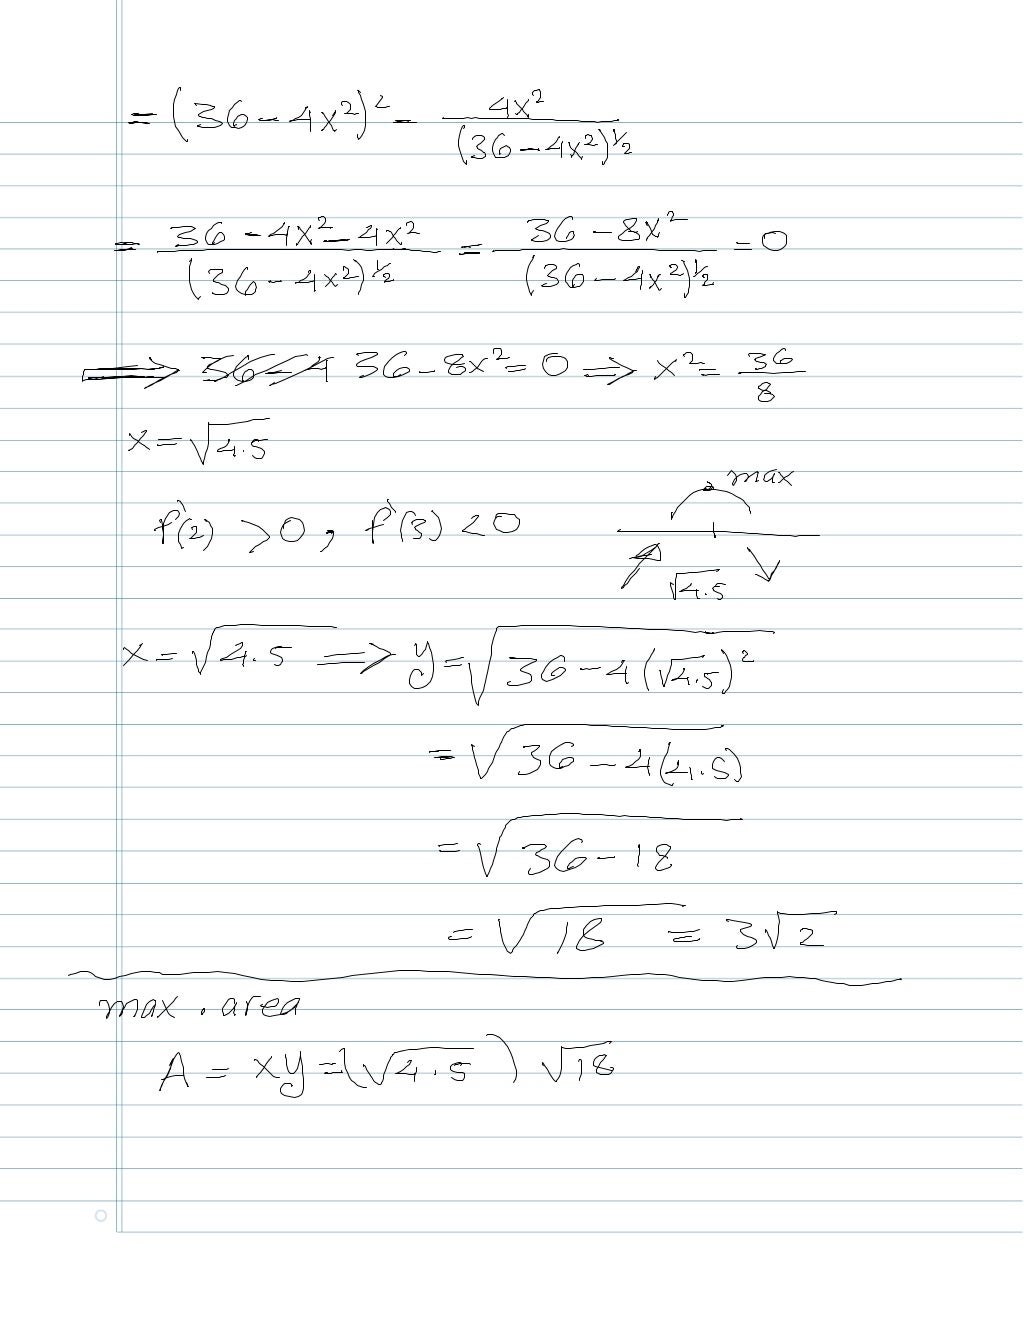 = (36 - 4x²)² - 4x² / (36 - 4x²)^½
= (36 - 4x² - 4x²) / (36 - 4x²)^½ = (36 - 8x²) / (36 - 4x²)^½ = 0
⟹ 36 - 8x² = 0 ⟹ x² = 36/8
x = √4.5
max
f'(2) > 0, f'(3) < 0
√4.5
x = √4.5 ⟹ y = √(36 - 4(√4.5)²)
= √(36 - 4(4.5))
= √(36 - 18)
= √18 = 3√2
max. area
A = xy = (√4.5) √18